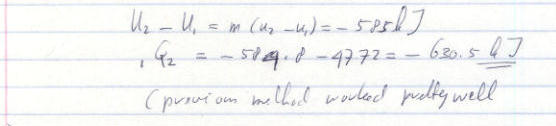 U₂ - U₁ = m (u₂ - u₁) = - 585 kJ
₁Q₂ = - 589.8 - 47.72 = - 630.5 kJ
(previous method worked pretty well